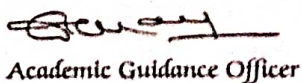 Academic Guidance Officer